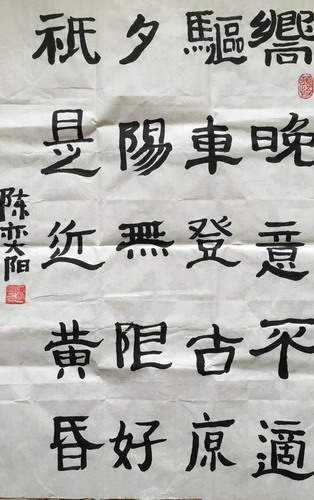 嚮晚意不適
驅車登古原
夕陽無限好
祇是近黄昏
陈奕阳